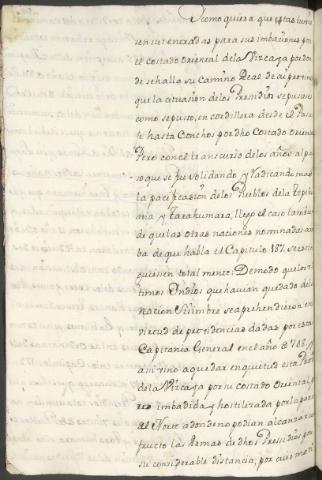 Y como quiera que estas
sen sus entradas para sus imbaciones por
el costado Oriental de la Vizcaya por don
de se halla su Camino Real de aí provino
que la situacion de los Presidios se pusiese
como se puso, en cordillera desde el Pasa
je hasta Conchos por dho Costado Oriental
Pero con el transcurso de los años al pa
so que se fue solidando y radicando mas
la pacificazon de los Pueblos de la Tepehu
ana y Tarahumara, llego el caso tambien
de que las otras naciones nominadas arri
ba de que habla el Capitulo 187. se
quiesen total mente: De modo que los ul
timos Indios que havian quedado de la
nacion se aprehendieron en
virtud de providencias dadas por esta
Capitania General en el año de 748, y
asi vino a quedar en quietud esta Prov.a
de la Vizcaya por su Costado Oriental, p
ero imbadida y hostilizada por la parte
del Norte a donde no podian alcanzar con
fructo las Armas de dhos Presidios por
su considerable distancia; por cuio moti